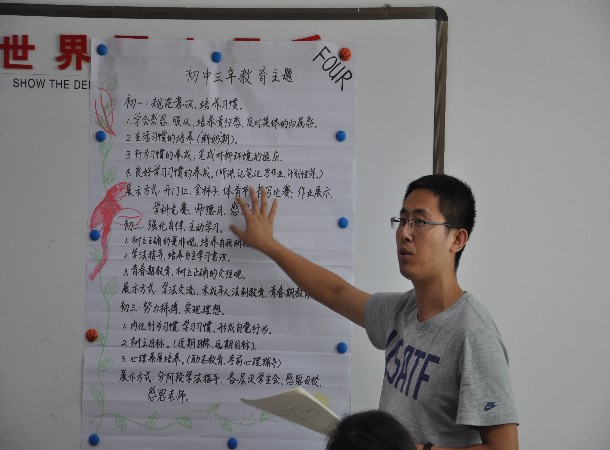 世界
SHOW THE DE
FOUR
初中三年教育主题
初一:规范意识,培养习惯。
1.学会紧密、服从,培养责任感,及对集体的归属感。
2.生活习惯的培养(断奶期)。
3.行为习惯的养成,完成对新环境的适应。
4.良好学习习惯的养成。(听课、记笔记、写作业、计划性等。)
展示方式:开门红、金种子、体育 书写比赛、作业展示、
学科竞赛、师徒月、
初二:强化自律,主动学习。
1.树立正确的是非观,培养自我
2.学法指导,培养自主学习意识。
3.青春期教育,树立正确的交往观。
展示方式:学法交流、未成年人法制教育、青春期教育
初三:努力拼搏,实现理想。
1.内化行为习惯、学习习惯,形成自觉行为。
2.树立目标。(近期目标、远期目标)
3.心理素质培养。(励志教育、考前心理辅导)
展示方式:分阶段学法指导、各层次学生会、感恩母校、
感恩老师。
USATF